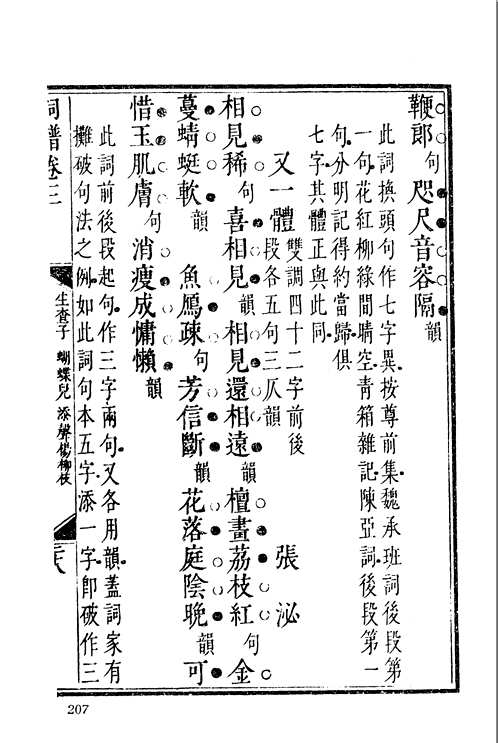 鞭郎句咫尺音容隔韻
此詞換頭句作七字異按尊前集魏承班詞後段第
一句花紅柳綠間晴空青箱雜記陳亞詞後段第一
句分明記得約當歸俱
七字其體正與此同
又一體 雙調四十二字前後
段各五句三仄韻 張泌
相見稀句喜相見韻相見還相遠韻檀畫荔枝紅句金
蔓蜻蜓軟韻 魚鴈疎句芳信斷韻花落庭陰晚韻可
惜玉肌膚句消瘦成慵懶韻
此詞前後段起句作三字兩句又各用韻蓋詞家有
攤破句法之例如此詞句本五字添一字即破作三
詞譜卷三 生查子 蝴蝶兒 添聲楊柳枝
207